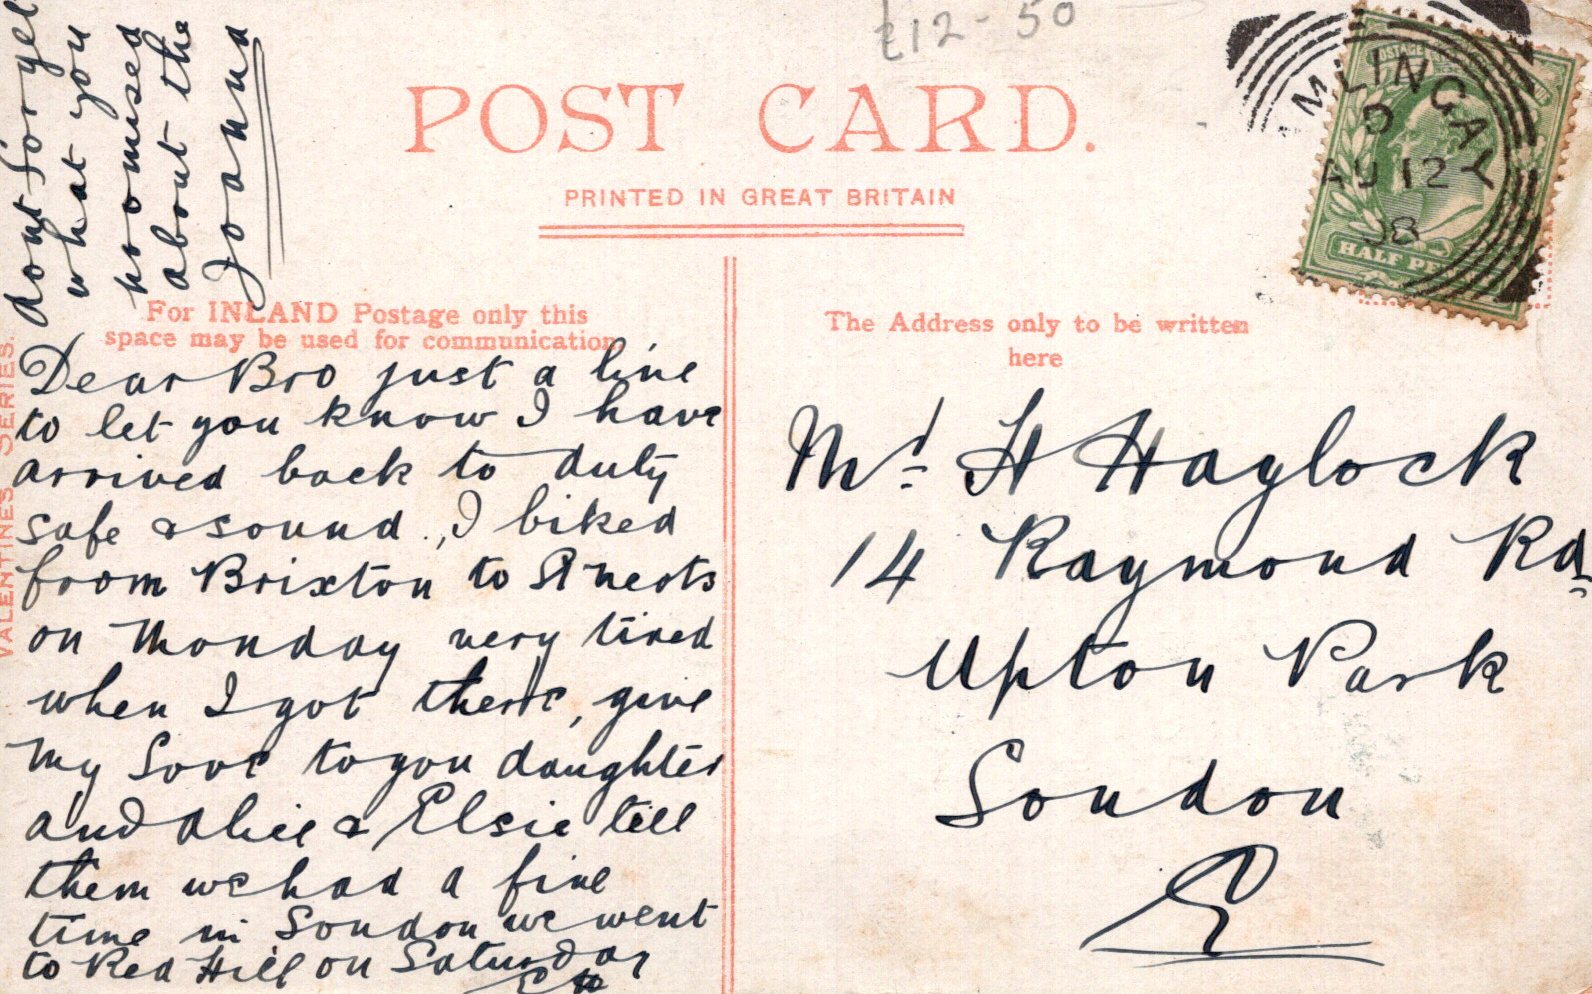 dont forget
what you
promised
about the
Joanna
£12-50
POST CARD.
PRINTED IN GREAT BRITAIN
MLINGAY
D
AU 12
08
HALF PE
For INLAND Postage only this
space may be used for communication.
The Address only to be written
here
VALENTINES SERIES.
Dear Bro just a line
to let you know I have
arrived back to duty
safe & sound., I biked
from Brixton to St Neots
on Monday very tired
when I got there, give
my Love to you daughter
and Alice & Elsie tell
them we had a fine
time in London we went
to Red Hill on Saturday
Mr. H Haylock
14 Raymond Rd
Upton Park
London
E